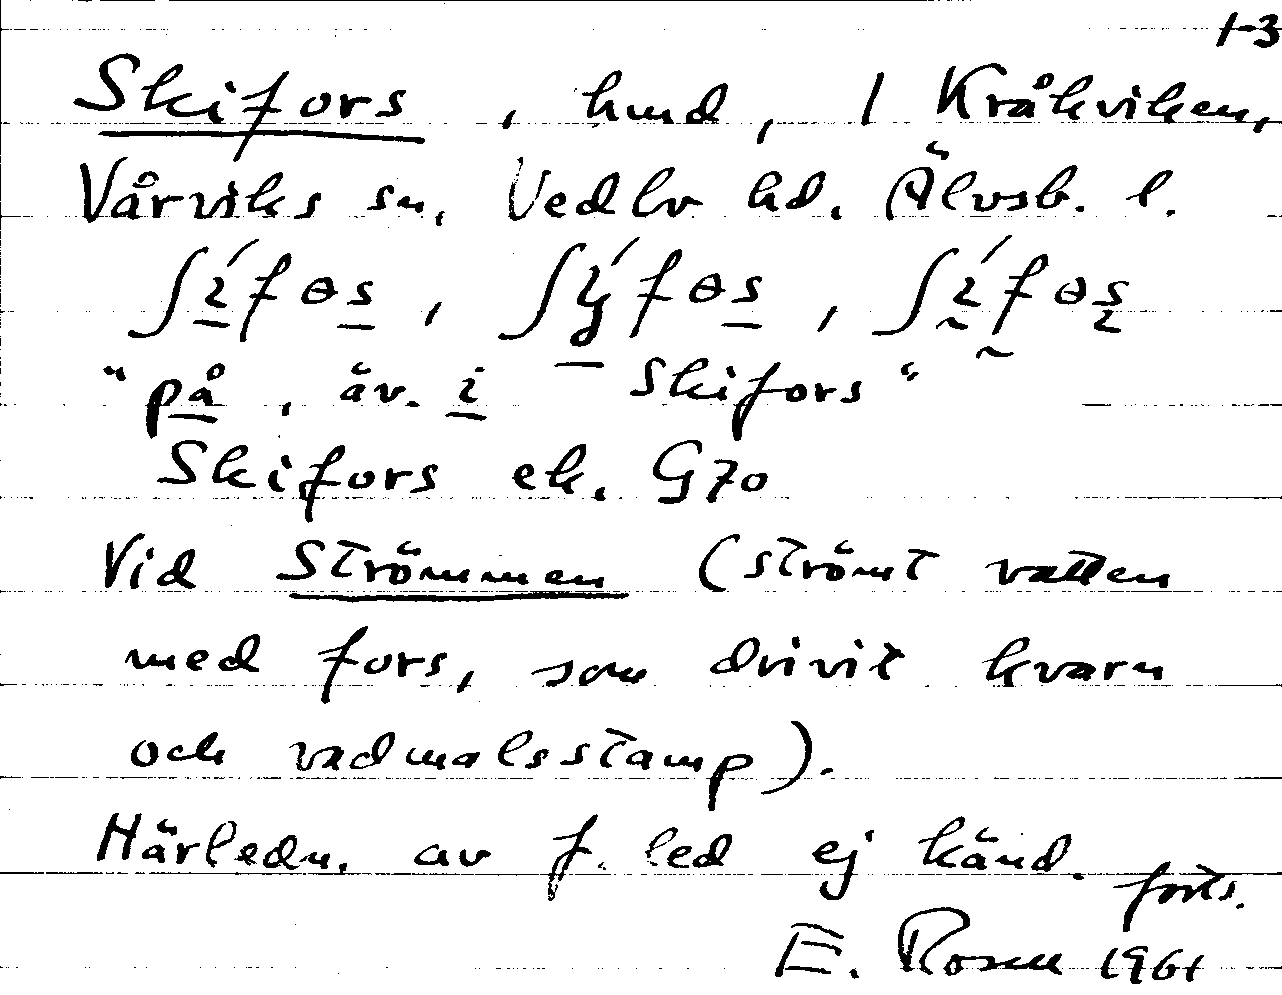 1-3
Skifors, hmd, / Kråkviken,
Vårviks sn, Vedbo hd. Älvsb. l.
"på, äv. i Skifors"
Skifors ek. G70
Vid Strömmen (strömt vatten
med fors, som drivit kvarn
och vadmalsstamp).
Härledn. av f. led ej känd.
forts.
E. Rosen 1961